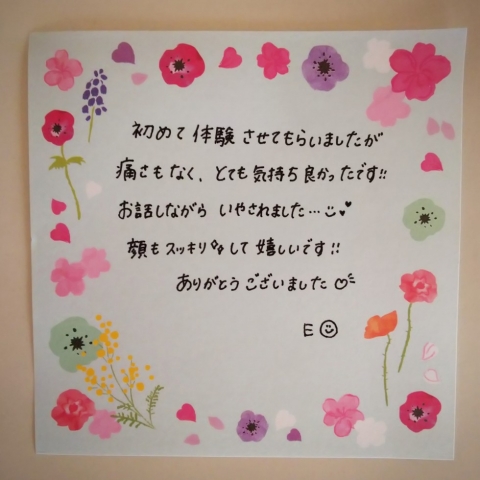 初めて体験させてもらいましたが
痛さもなく、とても気持ち良かったです!!
お話しながらいやされました…
顔もスッキリして嬉しいです!!
ありがとうございました
E